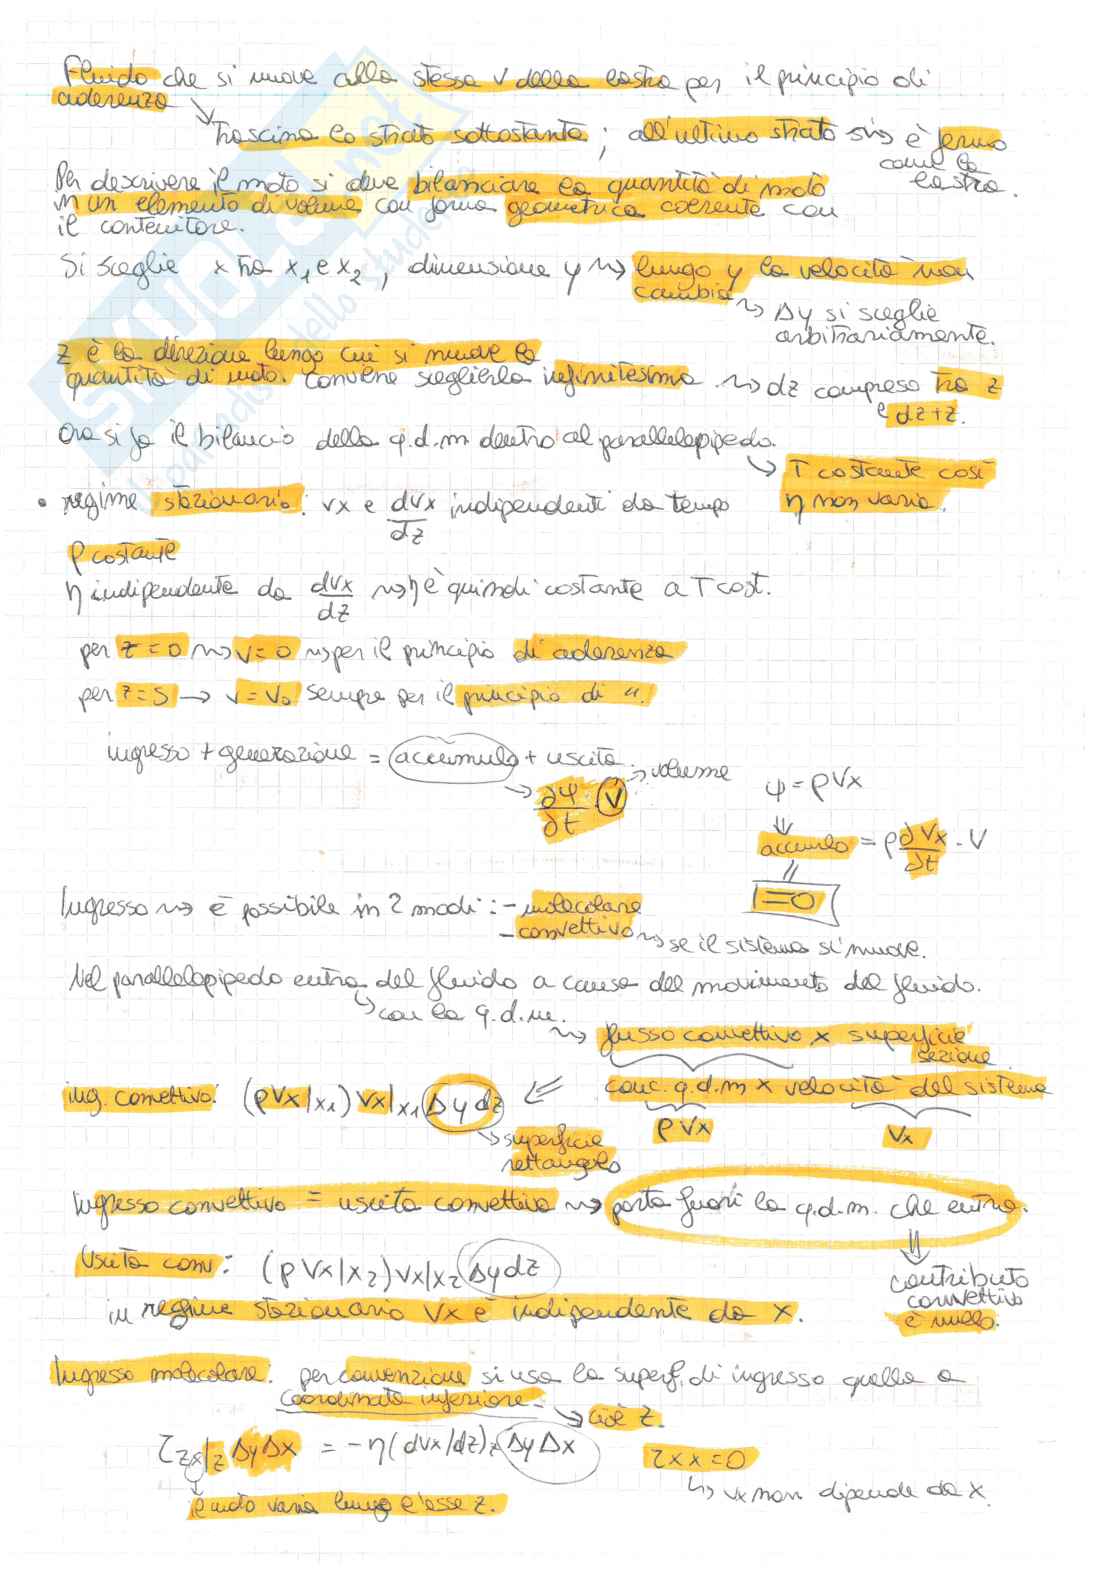 Fluido che si muove alla stessa v della lastra per il principio di
aderenza
trascina lo strato sottostante; all'ultimo strato sì è fermo
come la
lastra.
Per descrivere il moto si deve bilanciare la quantità di moto
in un elemento di volume con forma geometrica coerente con
il contenitore.
Si sceglie x tra x1 e x2, dimensione y ⇝ lungo y la velocità non
cambia ⇝ Δy si sceglie
arbitrariamente.
z è la direzione lungo cui si muove la
quantità di moto. Conviene sceglierla infinitesima ⇝ dz compreso tra z
e dz+z.
Ora si fa il bilancio della q.d.m dentro al parallelepipedo.
↳ T costante così
η non varia.
• regime stazionario: vx e dvx/dz indipendenti da tempo
ρ costante
η indipendente da dvx/dz ⇝ η è quindi costante a T cost.
per z=0 ⇝ v=0 ⇝ per il principio di aderenza
per z=S → v=v0 sempre per il principio di "
ingresso + generazione = accumulo + uscita
∂φ/∂t · V → volume
φ = ρvx
⇓
accumulo = ρ ∂vx/∂t · V
=0
Ingresso ⇝ è possibile in 2 modi: - molecolare
- convettivo ⇝ se il sistema si muove.
Nel parallelepipedo entra del fluido a causa del movimento del fluido.
↳ con la q.d.m.
⇝ flusso convettivo x superficie
sezione
ing. convettivo: (ρvx|x1) vx|x1 Δy dz ⇐ conc. q.d.m x velocità del sistema
ρvx vx
↳ superficie
rettangolo
Ingresso convettivo = uscita convettiva ⇝ porta fuori la q.d.m. che entra.
Uscita conv: (ρvx|x2) vx|x2 Δy dz
⇓
contributo
convettivo
è nullo.
in regime stazionario vx è indipendente da x.
Ingresso molecolare: per convenzione si usa la superf. di ingresso quella a
coordinata inferiore → cioè z.
τzx|z Δy Δx = -η(dvx/dz)z Δy Δx
τxx=0
↳ vx non dipende da x.
il moto varia lungo l'asse z.
SKUOLA.net